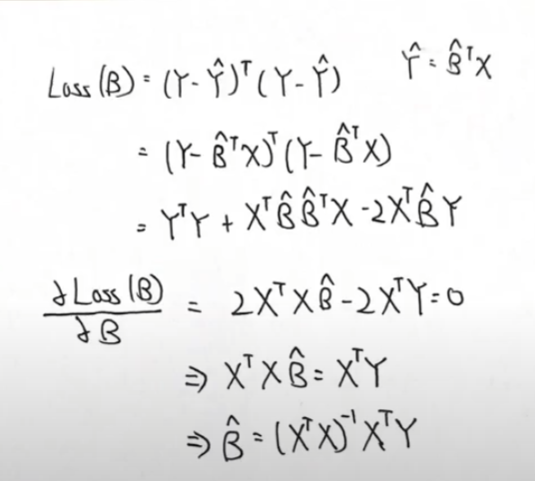 Loss(B) = (Y-Ŷ)ᵀ(Y-Ŷ) Ŷ = B̂ᵀX
= (Y-B̂ᵀX)ᵀ(Y-B̂ᵀX)
= YᵀY + XᵀB̂B̂ᵀX - 2XᵀB̂Y
∂Loss(B)/∂B = 2XᵀXB̂ - 2XᵀY = 0
⇒ XᵀXB̂ = XᵀY
⇒ B̂ = (XᵀX)⁻¹XᵀY